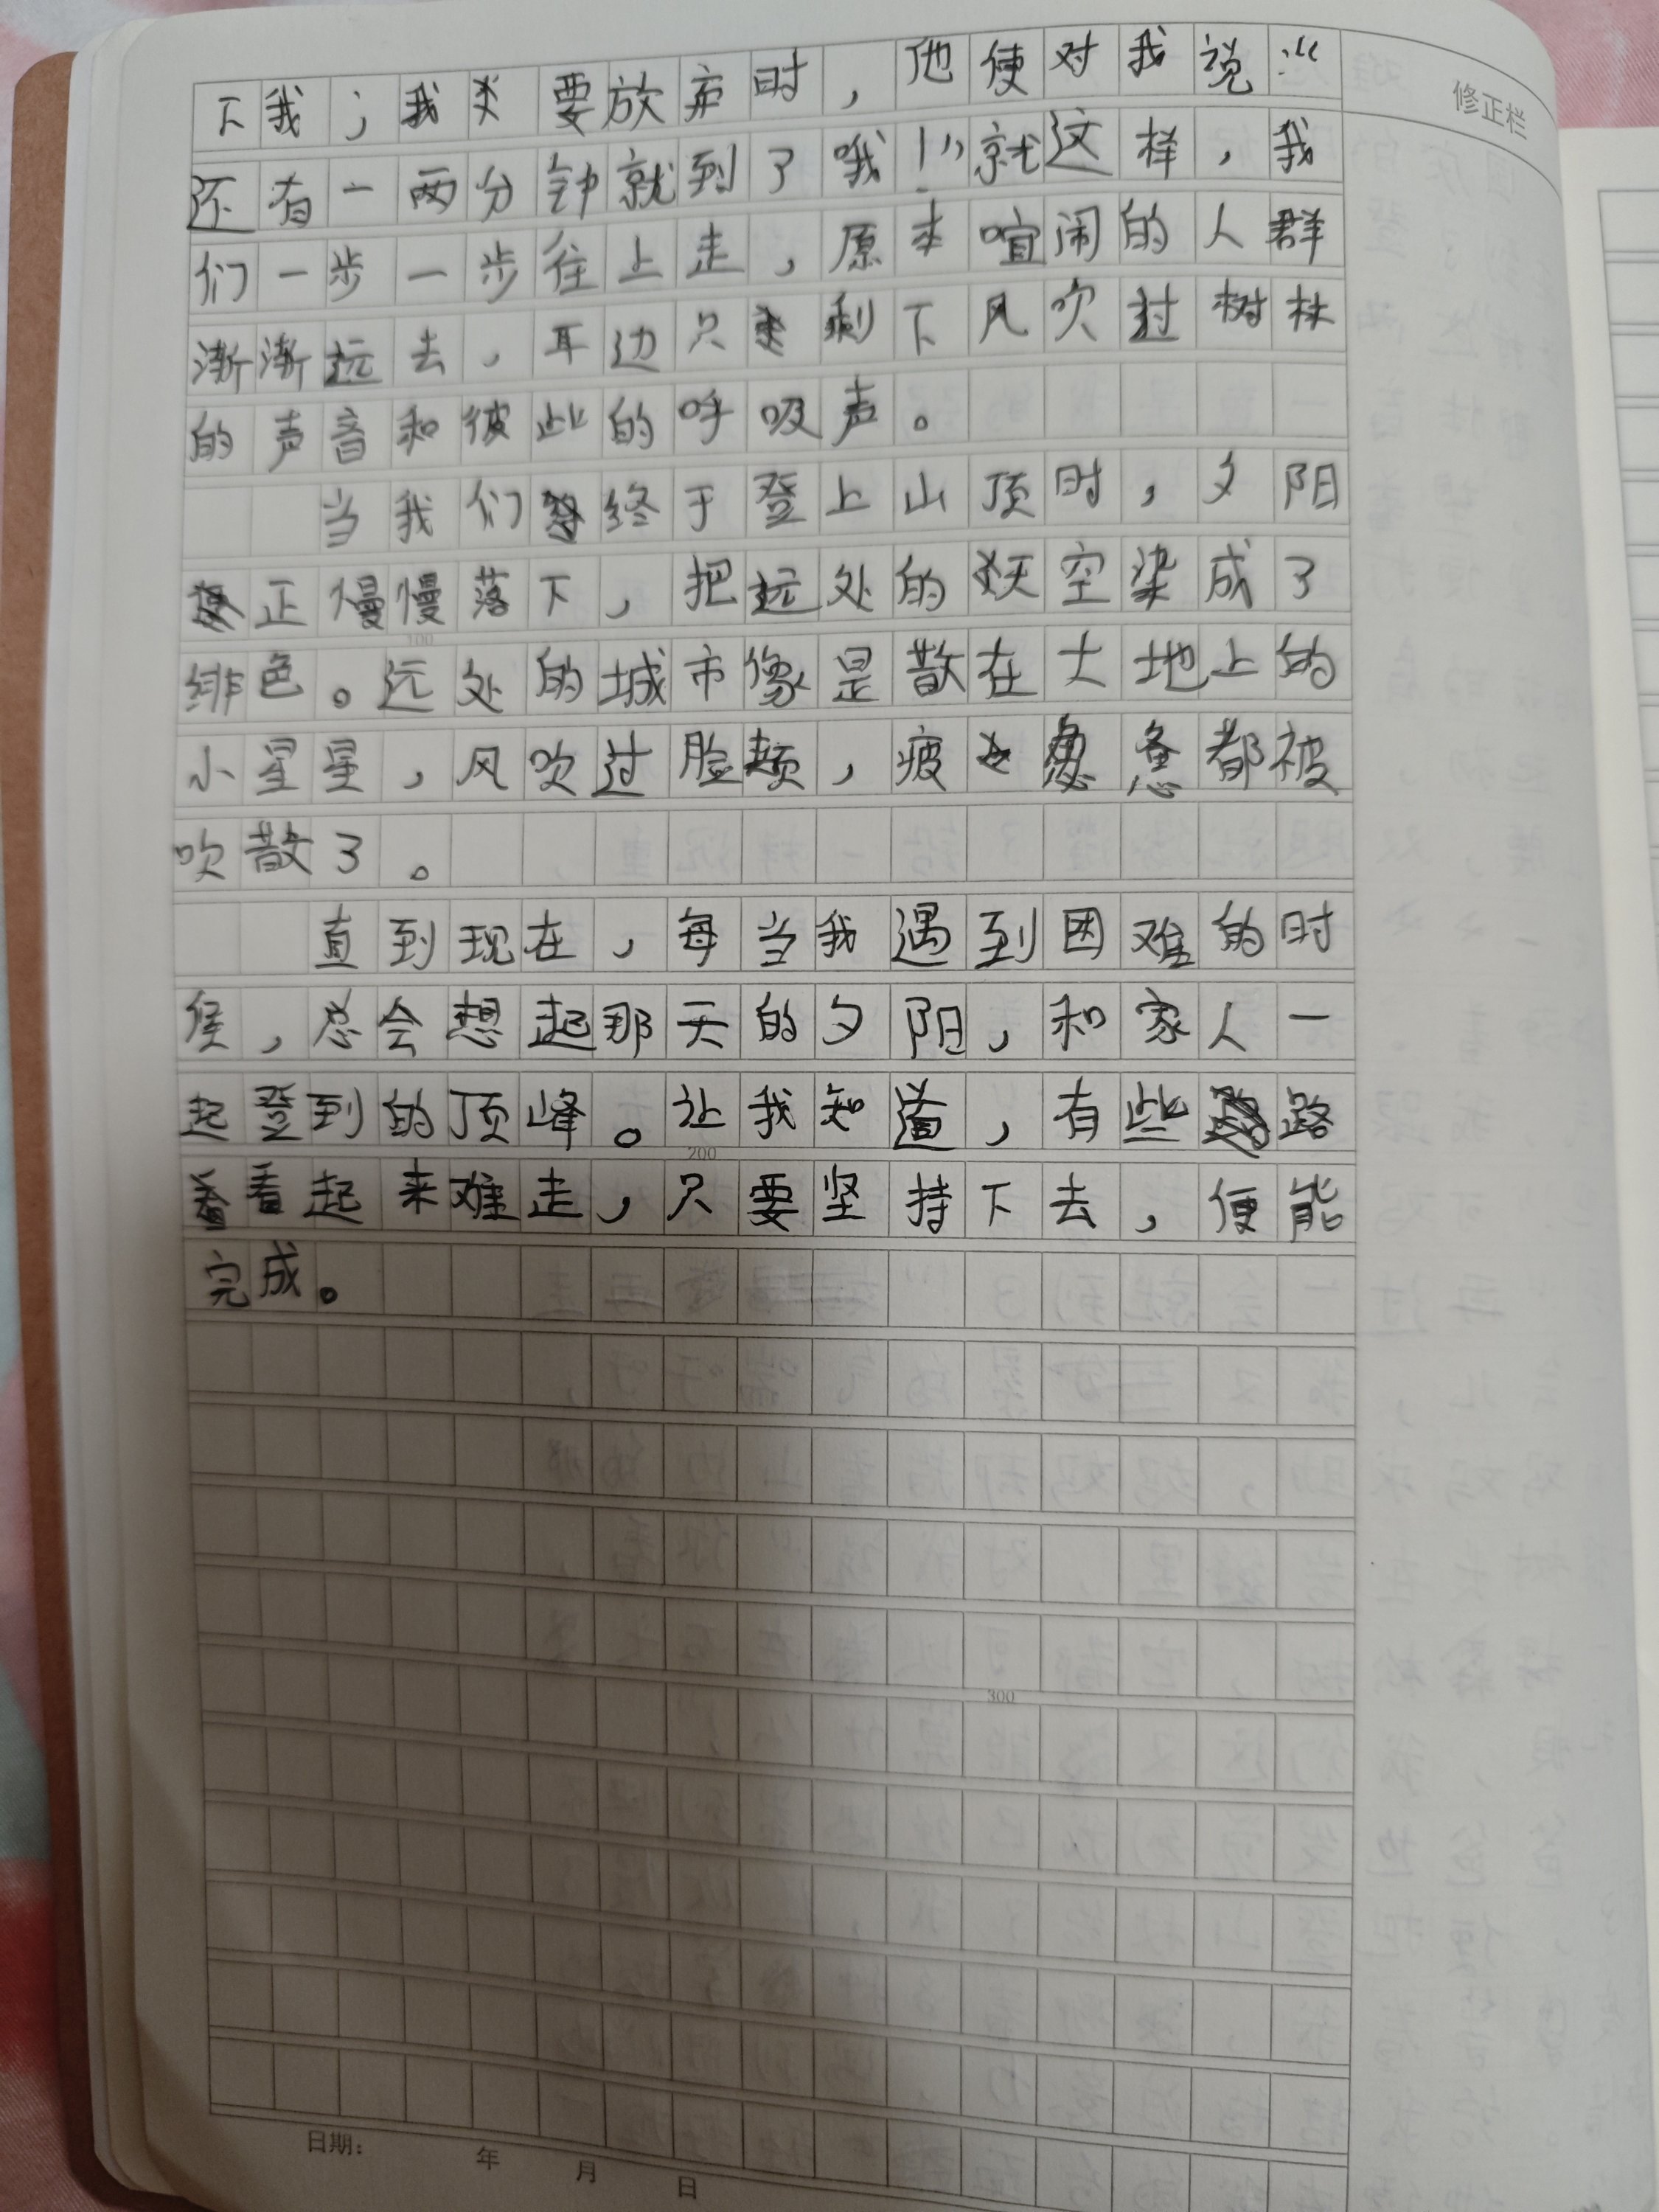 下我；我要放弃时，他便对我说：“
还有一两分钟就到了哦！”就这样，我
们一步一步往上走，原来喧闹的人群
渐渐远去，耳边只剩下风吹过树林
的声音和彼此的呼吸声。
当我们终于登上山顶时，夕阳
正慢慢落下，把远处的天空染成了
绯色。远处的城市像是散在大地上的
小星星，风吹过脸颊，疲惫都被
吹散了。
直到现在，每当我遇到困难的时
侯，总会想起那天的夕阳，和家人一
起登到的顶峰。让我知道，有些路
看起来难走，只要坚持下去，便能
完成。
修正栏
100
200
300
日期： 年 月 日